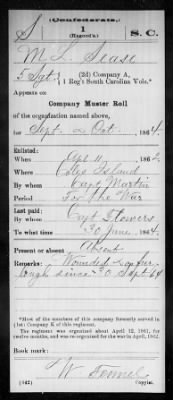 (Confederate.)
S 1 S. C.
(Hagood's)
M. L. Sease
5 Sgt, (2d) Company A,
1 Reg't South Carolina Vols.*
Appears on
Company Muster Roll
of the organization named above,
for Sept & Oct, 1864.
Enlisted:
When Apl 11, 1862
Where Coles Island
By whom Capt Martin
Period For the War
Last paid:
By whom Capt Flowers
To what time 30 June, 1864.
Present or absent Absent
Remarks: Wounded & on fur
lough since 30 Sept 64
*How of the members of this company formerly served in
Company K of this regiment.
The organization was organized about April 12, 1861, for
twelve months, and was re-organized for the war in April, 1862.
Book mark:
(642) Copyist.